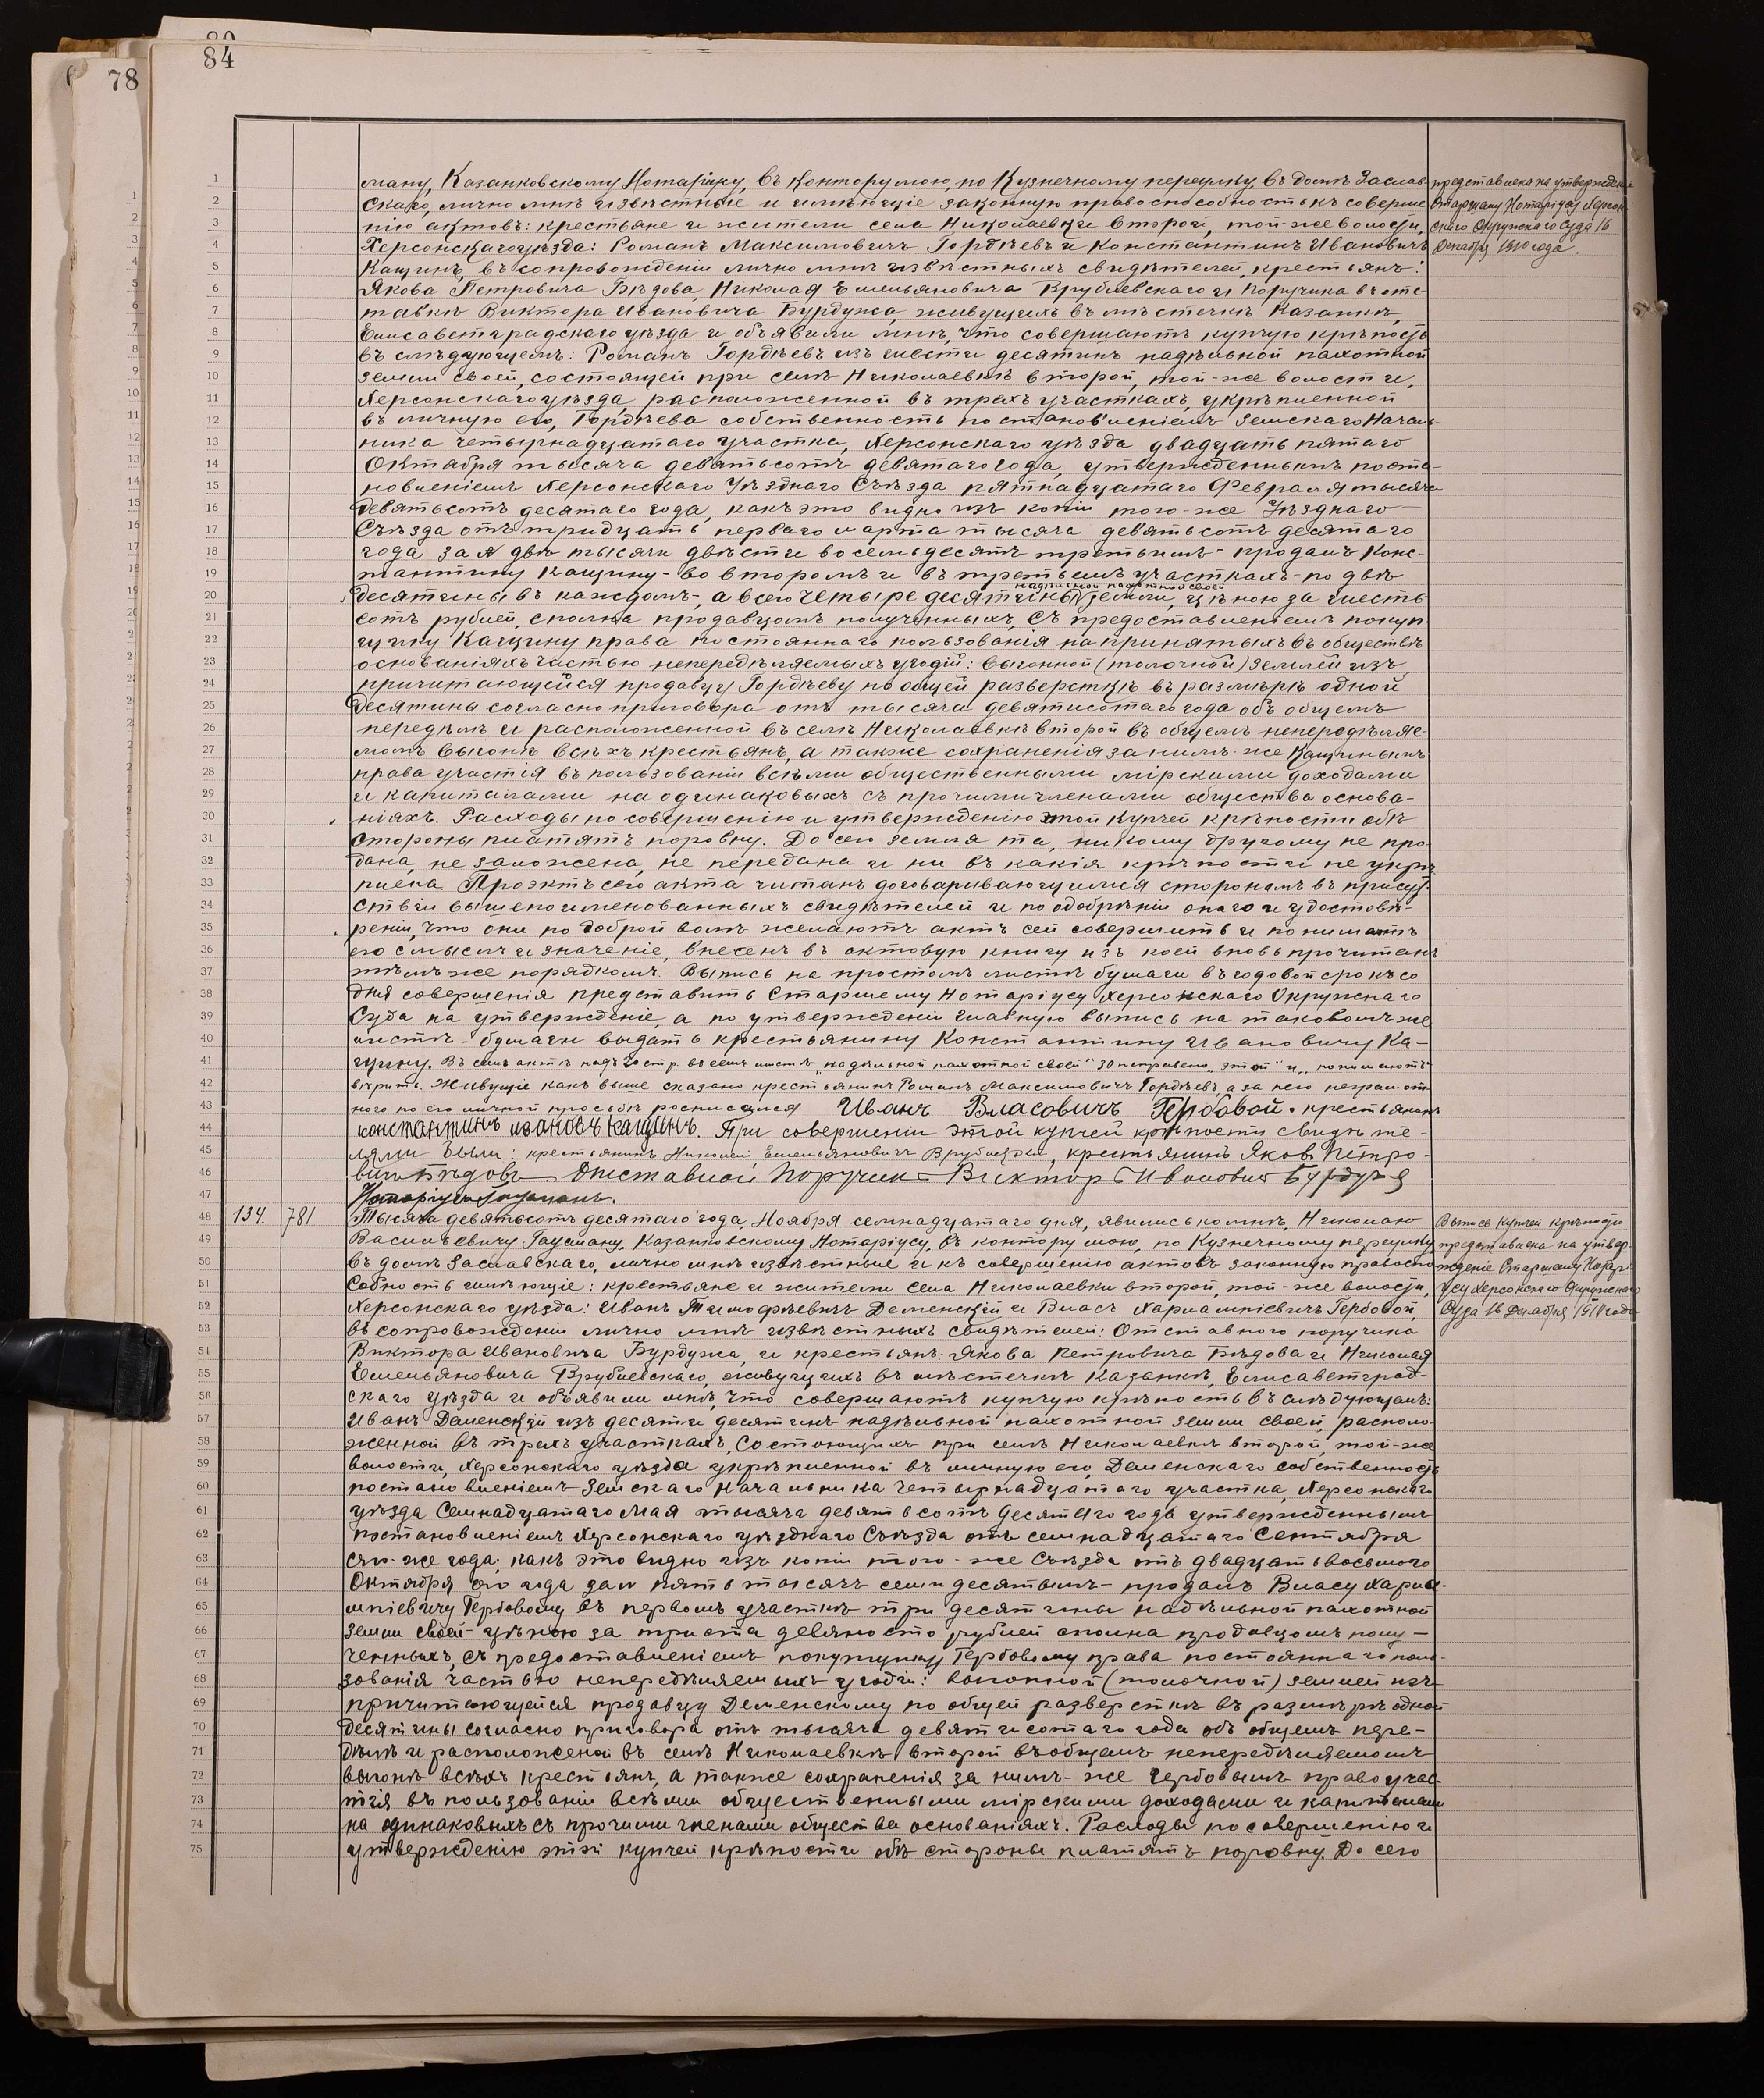 84
78
ману, Казанковскому Нотаріусу, въ контору мою, по Кузнечному переулку, въ домѣ Заслав-
скаго, лично мнѣ извѣстные и имѣющіе законную правоспособность къ соверше-
нію актовъ: крестьяне и жители села Николаевки второй, той-же волости,
Херсонскаго уѣзда: Романъ Максимовичъ Гордѣевъ и Константинъ Ивановичъ
Кащинъ, въ сопровожденіи лично мнѣ извѣстныхъ свидѣтелей, крестьянъ:
Якова Петровича Бѣдова, Николая Емельяновича Врублевскаго и Поручика въ отс-
тавкѣ Виктора Ивановича Бурдужа, живущихъ въ мѣстечкѣ Казанкѣ,
Елисаветградскаго уѣзда и объявили мнѣ, что совершаютъ купчую крѣпость
въ слѣдующемъ: Романъ Гордѣевъ изъ шести десятинъ надѣльной пахотной
земли своей, состоящей при селѣ Николаевкѣ второй, той-же волости,
Херсонскаго уѣзда, расположенной въ трехъ участкахъ, укрѣпленной
въ личную его, Гордѣева собственность постановленіемъ Земскаго Началь-
ника четырнадцатаго участка, Херсонскаго уѣзда двадцать пятаго
Октября тысяча девятьсотъ девятаго года, утвержденнымъ поста-
новленіемъ Херсонскаго Уѣзднаго Съѣзда пятнадцатаго Февраля тысяча
девятьсотъ десятаго года, какъ это видно изъ копіи того-же Уѣзднаго
Съѣзда отъ тридцать перваго марта тысяча девятьсотъ десятаго
года за № двѣ тысячи двѣсти восемьдесятъ третьимъ - продалъ Конс-
тантину Кащину - во второмъ и въ третьемъ участкахъ - по двѣ
надѣльной пахотной своей
десятины въ каждомъ, а всего четыре десятины земли, цѣною за шесть
сотъ рублей, сполна продавцомъ полученныхъ, съ предоставленіемъ покуп-
щику Кащину права постояннаго пользованія на принятыхъ въ обществѣ
основаніяхъ частью непередѣляемыхъ угодій: выгонной (толочной) землей изъ
причитающейся продавцу Гордѣеву по общей разверсткѣ въ размѣрѣ одной
десятины согласно приговора отъ тысяча девятисотаго года объ общемъ
передѣлѣ и расположенной въ селѣ Николаевкѣ второй въ общемъ непередѣляе-
момъ выгонѣ всѣхъ крестьянъ, а также сохраненія за нимъ-же Кащинымъ
права участія въ пользованіи всѣми общественными мірскими доходами
и капиталами на одинаковыхъ съ прочими членами общества основа-
ніяхъ. Расходы по совершенію и утвержденію этой купчей крѣпости обѣ
стороны платятъ поровну. До сего земля та, никому другому не про-
дана, не заложена, не передана и ни въ какія крѣпости не укрѣ-
плена. Проэктъ сего акта читанъ договаривающимся сторонамъ въ присут-
ствіи вышепоименованныхъ свидѣтелей и по одобреніи онаго и удостовѣ-
реніи, что они по доброй волѣ желаютъ актъ сей совершить и понимаютъ
его смыслъ и значеніе, внесенъ въ актовую книгу изъ коей вновь прочитанъ
тѣмъ же порядкомъ. Выпись на простомъ листѣ бумаги въ годовой срокъ со
дня совершенія представить Старшему Нотаріусу Херсонскаго Окружнаго
Суда на утвержденіе, а по утвержденіи главную выпись на таковомъ же
листѣ бумаги выдать крестьянину Константину Ивановичу Ка-
щину. Въ семъ актѣ надъ 20 стр. въ семъ листѣ „надѣльной пахотной своей“ 30 поправлено „этой“ и „понимаютъ“
вѣрить. Живущіе какъ выше сказано крестьянинъ Романъ Максимовичъ Гордѣевъ, а за него неграмот-
наго по его личной просьбѣ росписался Иванъ Власовичъ Гербовой. крестьянинъ
константинъ ивановъ кащинъ. При совершеніи этой купчей крѣпости свидѣте-
лями были: крестьянинъ Николай Емельяновичъ Врублевскій, крестьянинъ Яковъ Петро-
вичъ Бѣдовъ Отставной Поручикъ Викторъ Ивановичъ Бурдужа
Нотаріусъ Гаусманъ.
представлена на утвержденіе
Старшему Нотаріусу Херсон-
скаго Окружнаго Суда 16
Декабря 1910 года.
134. 781
Тысяча девятьсотъ десятаго года, Ноября семнадцатаго дня, явились ко мнѣ, Николаю
Васильевичу Гаусману, Казанковскому Нотаріусу, въ контору мою, по Кузнечному переулку
въ домѣ Заславскаго, лично мнѣ извѣстные и къ совершенію актовъ законную правоспо-
собность имѣющіе: крестьяне и жители села Николаевки второй, той-же волости,
Херсонскаго уѣзда: Иванъ Тимофѣевичъ Деменскій и Власъ Харлампіевичъ Гербовой,
въ сопровожденіи лично мнѣ извѣстныхъ свидѣтелей: Отставного поручика
Виктора Ивановича Бурдужа, и крестьянъ: Якова Петровича Бѣдова и Николая
Емельяновича Врублевскаго, живущихъ въ мѣстечкѣ Казанкѣ, Елисаветград-
скаго уѣзда и объявили мнѣ, что совершаютъ купчую крѣпость въ слѣдующемъ:
Иванъ Деменскій изъ десяти десятинъ надѣльной пахотной земли своей, располо-
женной въ трехъ участкахъ, состоящихъ при селѣ Николаевкѣ второй, той-же
волости, Херсонскаго уѣзда укрѣпленной въ личную его, Деменскаго собственность
постановленіемъ Земскаго Начальника четырнадцатаго участка, Херсонскаго
уѣзда Семнадцатаго Мая тысяча девятьсотъ десятаго года утвержденнымъ
постановленіемъ Херсонскаго уѣзднаго Съѣзда отъ семнадцатаго Сентября
сего-же года, какъ это видно изъ копіи того-же Съѣзда отъ двадцать восьмого
Октября сего года за № пять тысячъ семидесятымъ - продалъ Власу Харла-
мпіевичу Гербовому въ первомъ участкѣ три десятины надѣльной пахотной
земли своей - цѣною за триста девяносто рублей сполна продавцомъ полу-
ченныхъ, съ предоставленіемъ покупщику Гербовому права постояннаго поль-
зованія частью непередѣляемыхъ угодій: выгонной (толочной) землей изъ
причитающейся продавцу Деменскому по общей разверсткѣ въ размѣрѣ одной
десятины согласно приговора отъ тысяча девятисотаго года объ общемъ пере-
дѣлѣ и расположеной въ селѣ Николаевкѣ второй въ общемъ непередѣляемомъ
выгонѣ всѣхъ крестьянъ, а также сохраненія за нимъ-же Гербовымъ право учас-
тія въ пользованіи всѣми общественными мірскими доходами и капиталами
на одинаковыхъ съ прочими членами общества основаніяхъ. Расходы по совершенію и
утвержденію этой купчей крѣпости обѣ стороны платятъ поровну. До сего
Выпись купчей крѣпости
представлена на утвер-
жденіе Старшему Нотарі-
усу Херсонскаго Окружнаго
Суда 16 Декабря 1910 года